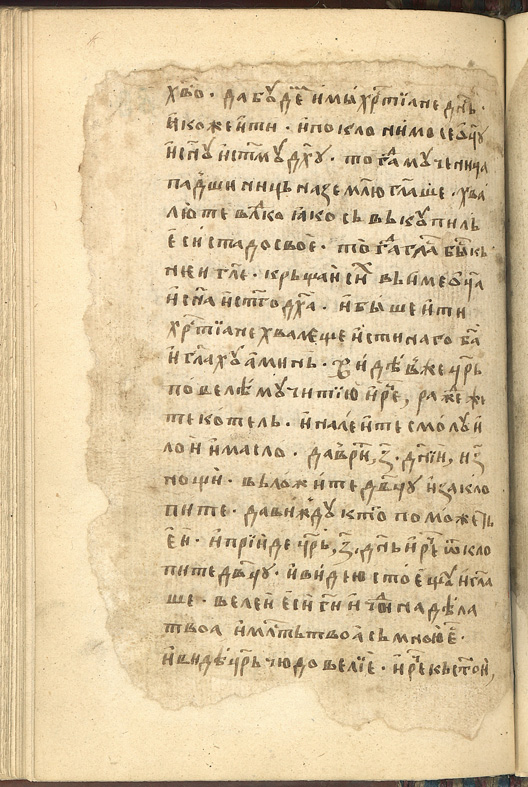 хв҃о · да бꙋдѐ и мы̀ хр҃тїане дн҃ь ·
и҆коже и҆ ти · и҆ поклоними се ѻ҆ц҃ꙋ
и҆ сн҃ꙋ и҆ ст҃мꙋ дх҃ꙋ · тога мꙋченица
падши ниць на землю гл҃аше · хва
лю те влⷣко ꙗко съвькꙋпиль
є҆си стадо свое · тога гла бы
кь
ней гл҃е · крьщаи се вь име ѻ҆ц҃а
и҆ сн҃а и҆ ст҃го дх҃а · и҆ бы́ше и҆ ти
хр҃тїане хвалеще и҆стинаго ба҃
и҆ гл҃ахꙋ аминь · Видѣ же цр҃ь
повелѣ мꙋчитїю и҆ р҃е, ражеже
те котель · и҆ налеите смолꙋ и
лои и҆ масло · да врѝ, з҃ · дн҃їи, и҆ з҃
нощи · вьложите двⷭ҇цꙋ и҆ закло
пите · да виждꙋ кто поможеть
е҆и · и҆ прїиде цр҃ь, з҃, дн҃ь и҆ р҃е ѿкло
пите двц҃ꙋ · и҆ виде ю стоещꙋ и҆ гл҃а
ше · велеи е҆си ги҃ и҆ чю҆на дѣла
твоа и҆ млⷭ҇ть твоа сь мною є҆ ·
и҆ видѣ цр҃ь чюдо велїе · и҆ р҃е кь стои,